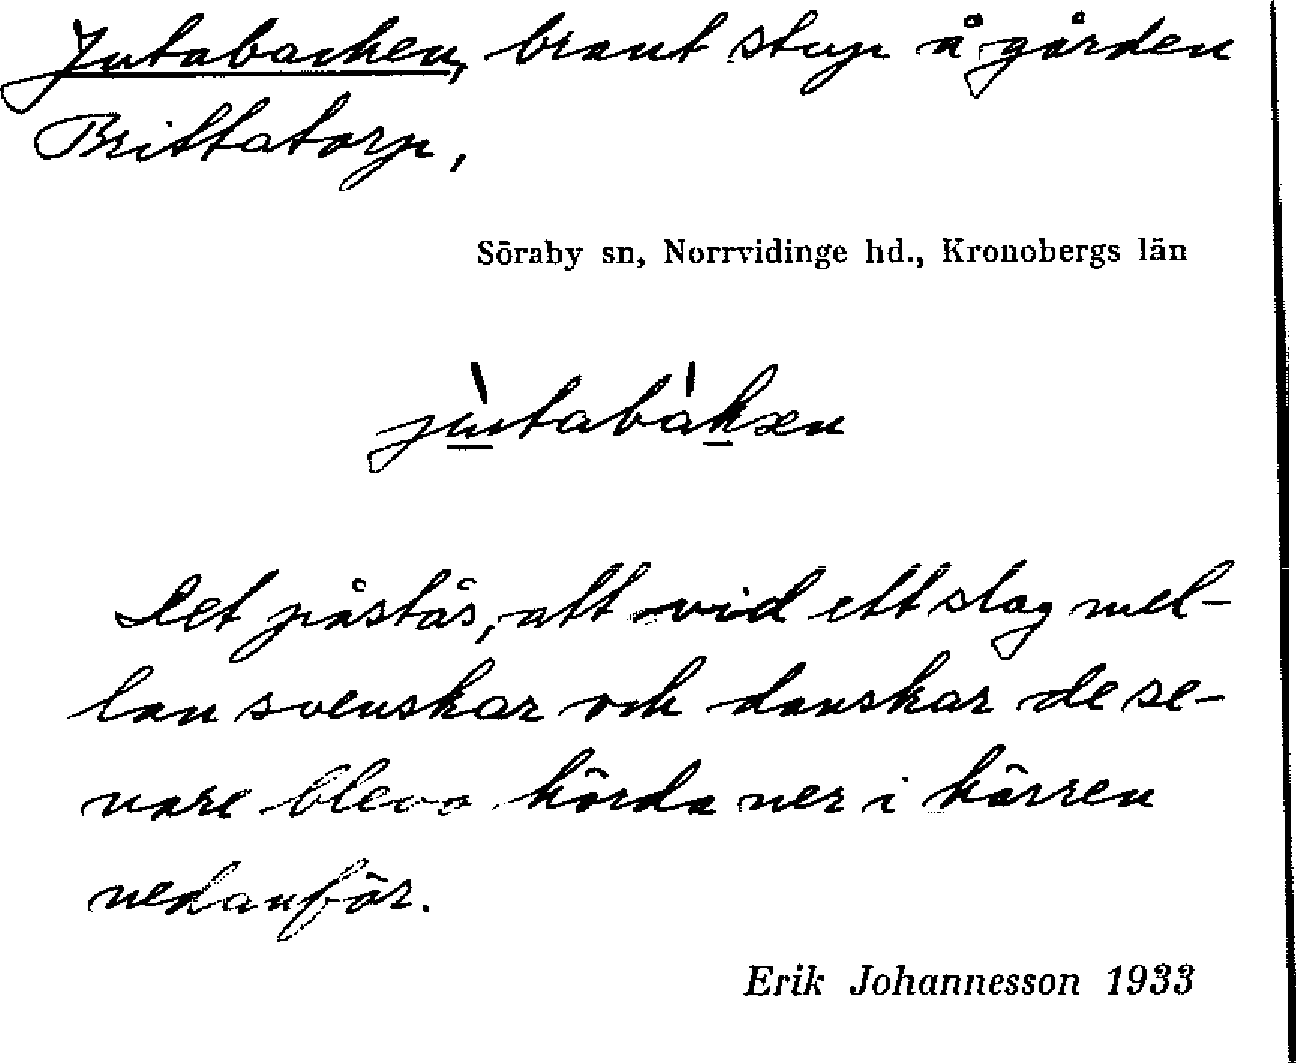 Jutabacken, brant stup å gården
Brittatorp,
Söraby sn, Norrvidinge hd., Kronobergs län
jutabakæn
Det påstås, att vid ett slag mel-
lan svenskar och danskar de se-
nare blevo körda ner i kärren
nedanför.
Erik Johannesson 1933